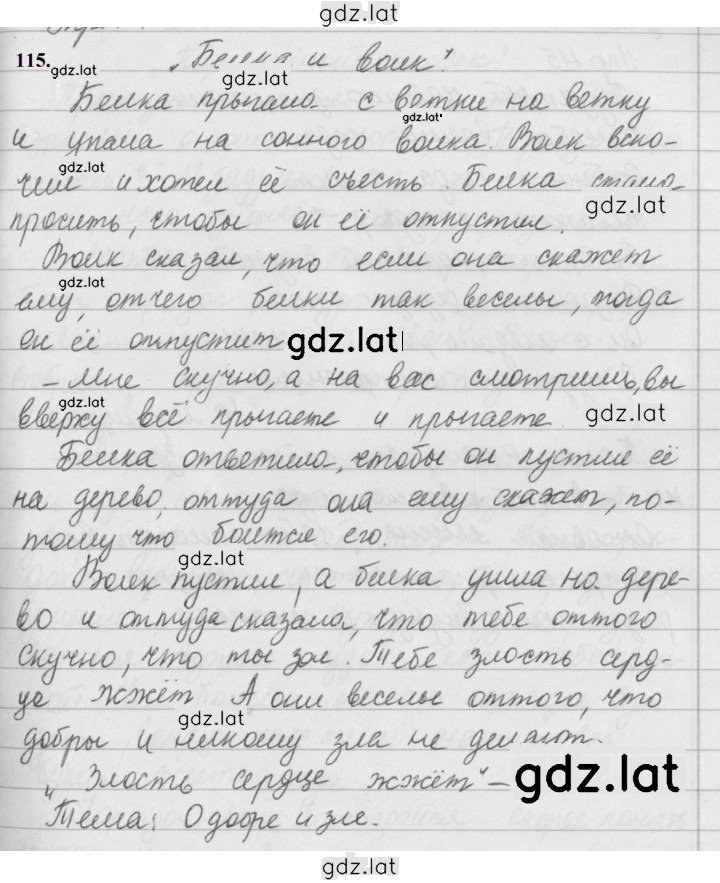 gdz.lat
115. „Белка и волк"
gdz.lat gdz.lat
Белка прыгала с ветки на ветку
gdz.lat
и упала на сонного волка. Волк вско-
gdz.lat
чил и хотел её съесть. Белка стала
gdz.lat
просить, чтобы он её отпустил.
Волк сказал, что если она скажет
gdz.lat
ему, отчего белки так веселы, тогда
он её отпустит gdz.lat
– Мне скучно, а на вас смотришь, вы
gdz.lat gdz.lat
вверху всё прыгаете и прыгаете.
Белка ответила, чтобы он пустил её
на дерево, оттуда она ему скажет, по-
тому что боится его.
gdz.lat
Волк пустил, а белка ушла на дере-
во и оттуда сказала, что тебе оттого
скучно, что ты зол. Тебе злость серд-
це жжёт. А они веселы оттого, что
gdz.lat
добры и никому зла не делают.
„Злость сердце жжёт" –
gdz.lat
Тема: О добре и зле.
gdz.lat